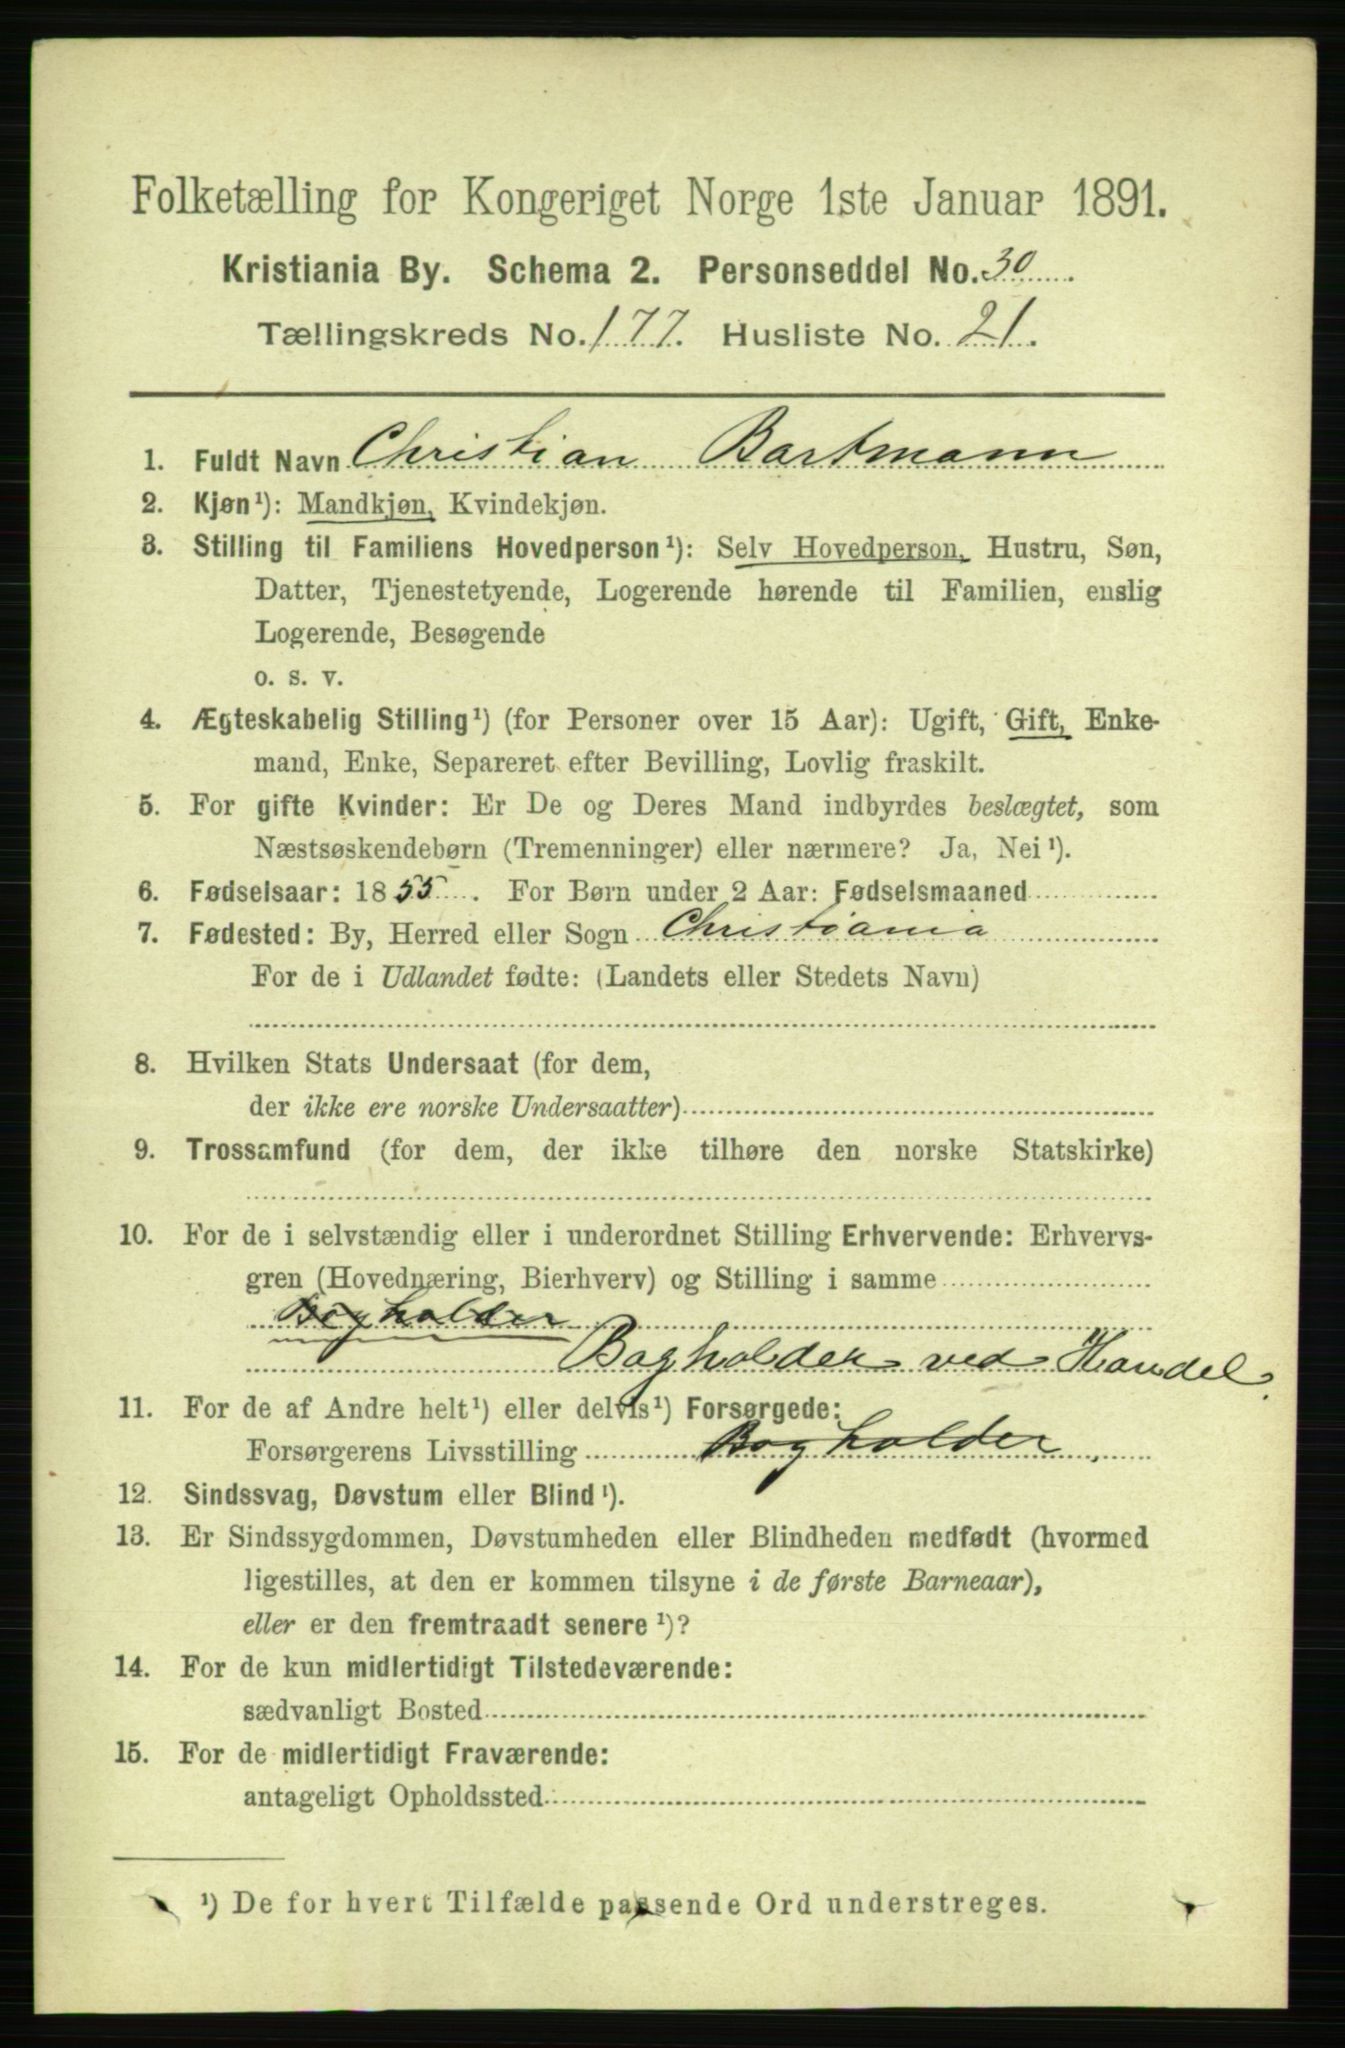 Folketælling for Kongeriget Norge 1ste Januar 1891.
Kristiania By. Schema 2. Personseddel No. 30
Tællingskreds No. 177. Husliste No. 21.
1. Fuldt Navn Christian Bartmann
2. Kjøn¹): Mandkjøn, Kvindekjøn.
3. Stilling til Familiens Hovedperson¹): Selv Hovedperson, Hustru, Søn,
Datter, Tjenestetyende, Logerende hørende til Familien, enslig
Logerende, Besøgende
o. s. v.
4. Ægteskabelig Stilling¹) (for Personer over 15 Aar): Ugift, Gift, Enke-
mand, Enke, Separeret efter Bevilling, Lovlig fraskilt.
5. For gifte Kvinder: Er De og Deres Mand indbyrdes beslægtet, som
Næstsøskendebørn (Tremenninger) eller nærmere? Ja, Nei¹).
6. Fødselsaar: 1855. For Børn under 2 Aar: Fødselsmaaned
7. Fødested: By, Herred eller Sogn Christiania
For de i Udlandet fødte: (Landets eller Stedets Navn)
8. Hvilken Stats Undersaat (for dem,
der ikke ere norske Undersaatter)
9. Trossamfund (for dem, der ikke tilhøre den norske Statskirke)
10. For de i selvstændig eller i underordnet Stilling Erhvervende: Erhvervs-
gren (Hovednæring, Bierhverv) og Stilling i samme
Bogholder
Bogholder ved Handel.
11. For de af Andre helt¹) eller delvis¹) Forsørgede:
Forsørgerens Livsstilling Bogholder
12. Sindssvag, Døvstum eller Blind¹).
13. Er Sindssygdommen, Døvstumheden eller Blindheden medfødt (hvormed
ligestilles, at den er kommen tilsyne i de første Barneaar),
eller er den fremtraadt senere¹)?
14. For de kun midlertidigt Tilstedeværende:
sædvanligt Bosted
15. For de midlertidigt Fraværende:
antageligt Opholdssted
¹) De for hvert Tilfælde passende Ord understreges.